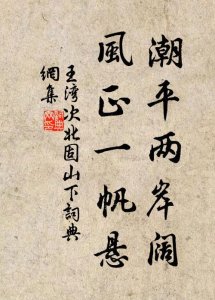 潮平两岸阔
風正一帆悬
王湾次北固山下詞典
網集